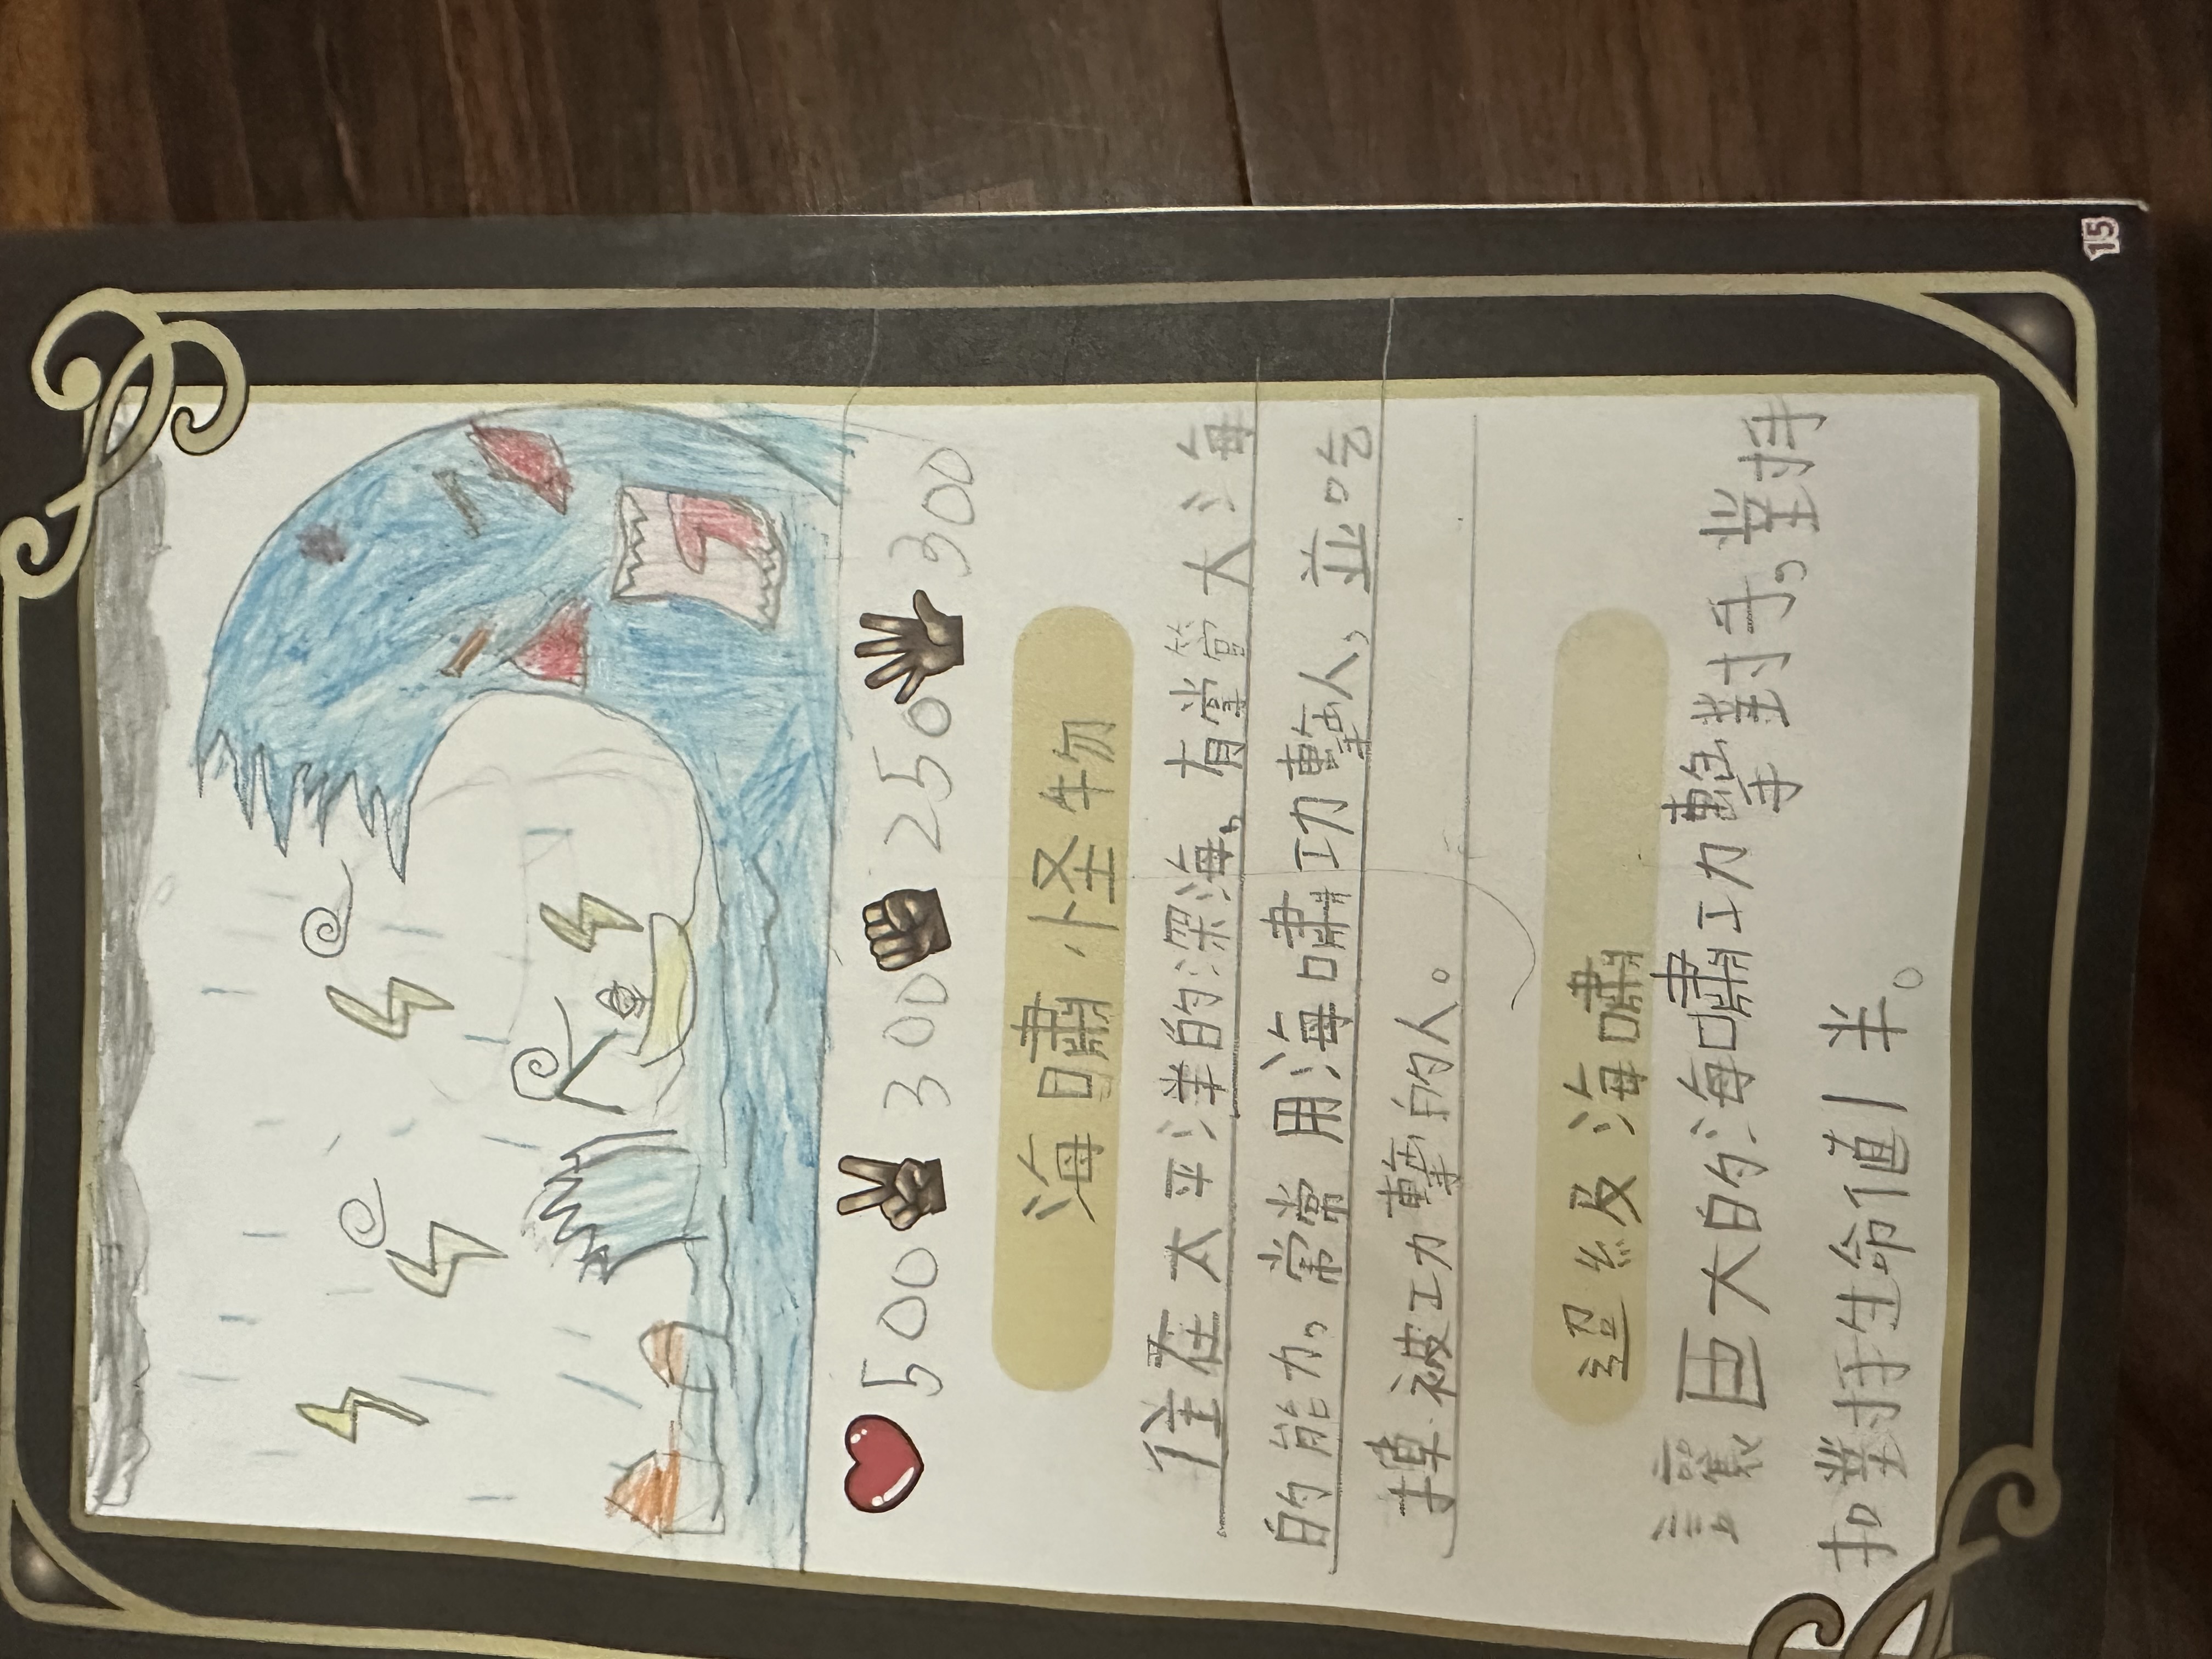 500 300 250 300
海嘯怪物
住在太平洋的深海,有掌管大海
的能力,常常用海嘯功擊人,並吃
掉被功擊的人。
超級海嘯
讓巨大的海嘯功擊對手,對手
扣對手生命值一半。
15